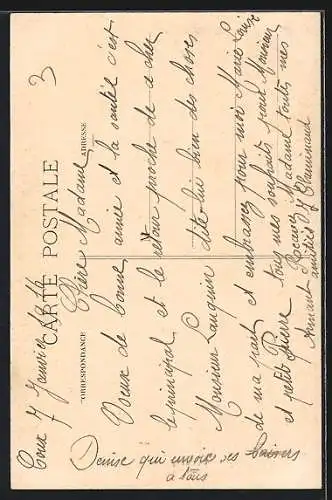 3
CARTE POSTALE
CORRESPONDANCE
ADRESSE
7 Janvier 1916
Chère Madame,
Voeux de bonne année et la santée c'est
le principal et le retour proche de ce cher
Monsieur Lauquin dite-lui bien des choses
de ma part et embrassez pour moi Marie Louise
et petit Pierre tous mes souhaits pour Monsieur
Recevez Madame toutes mes
amitiés
Denise qui envoie ses baisers
a tous